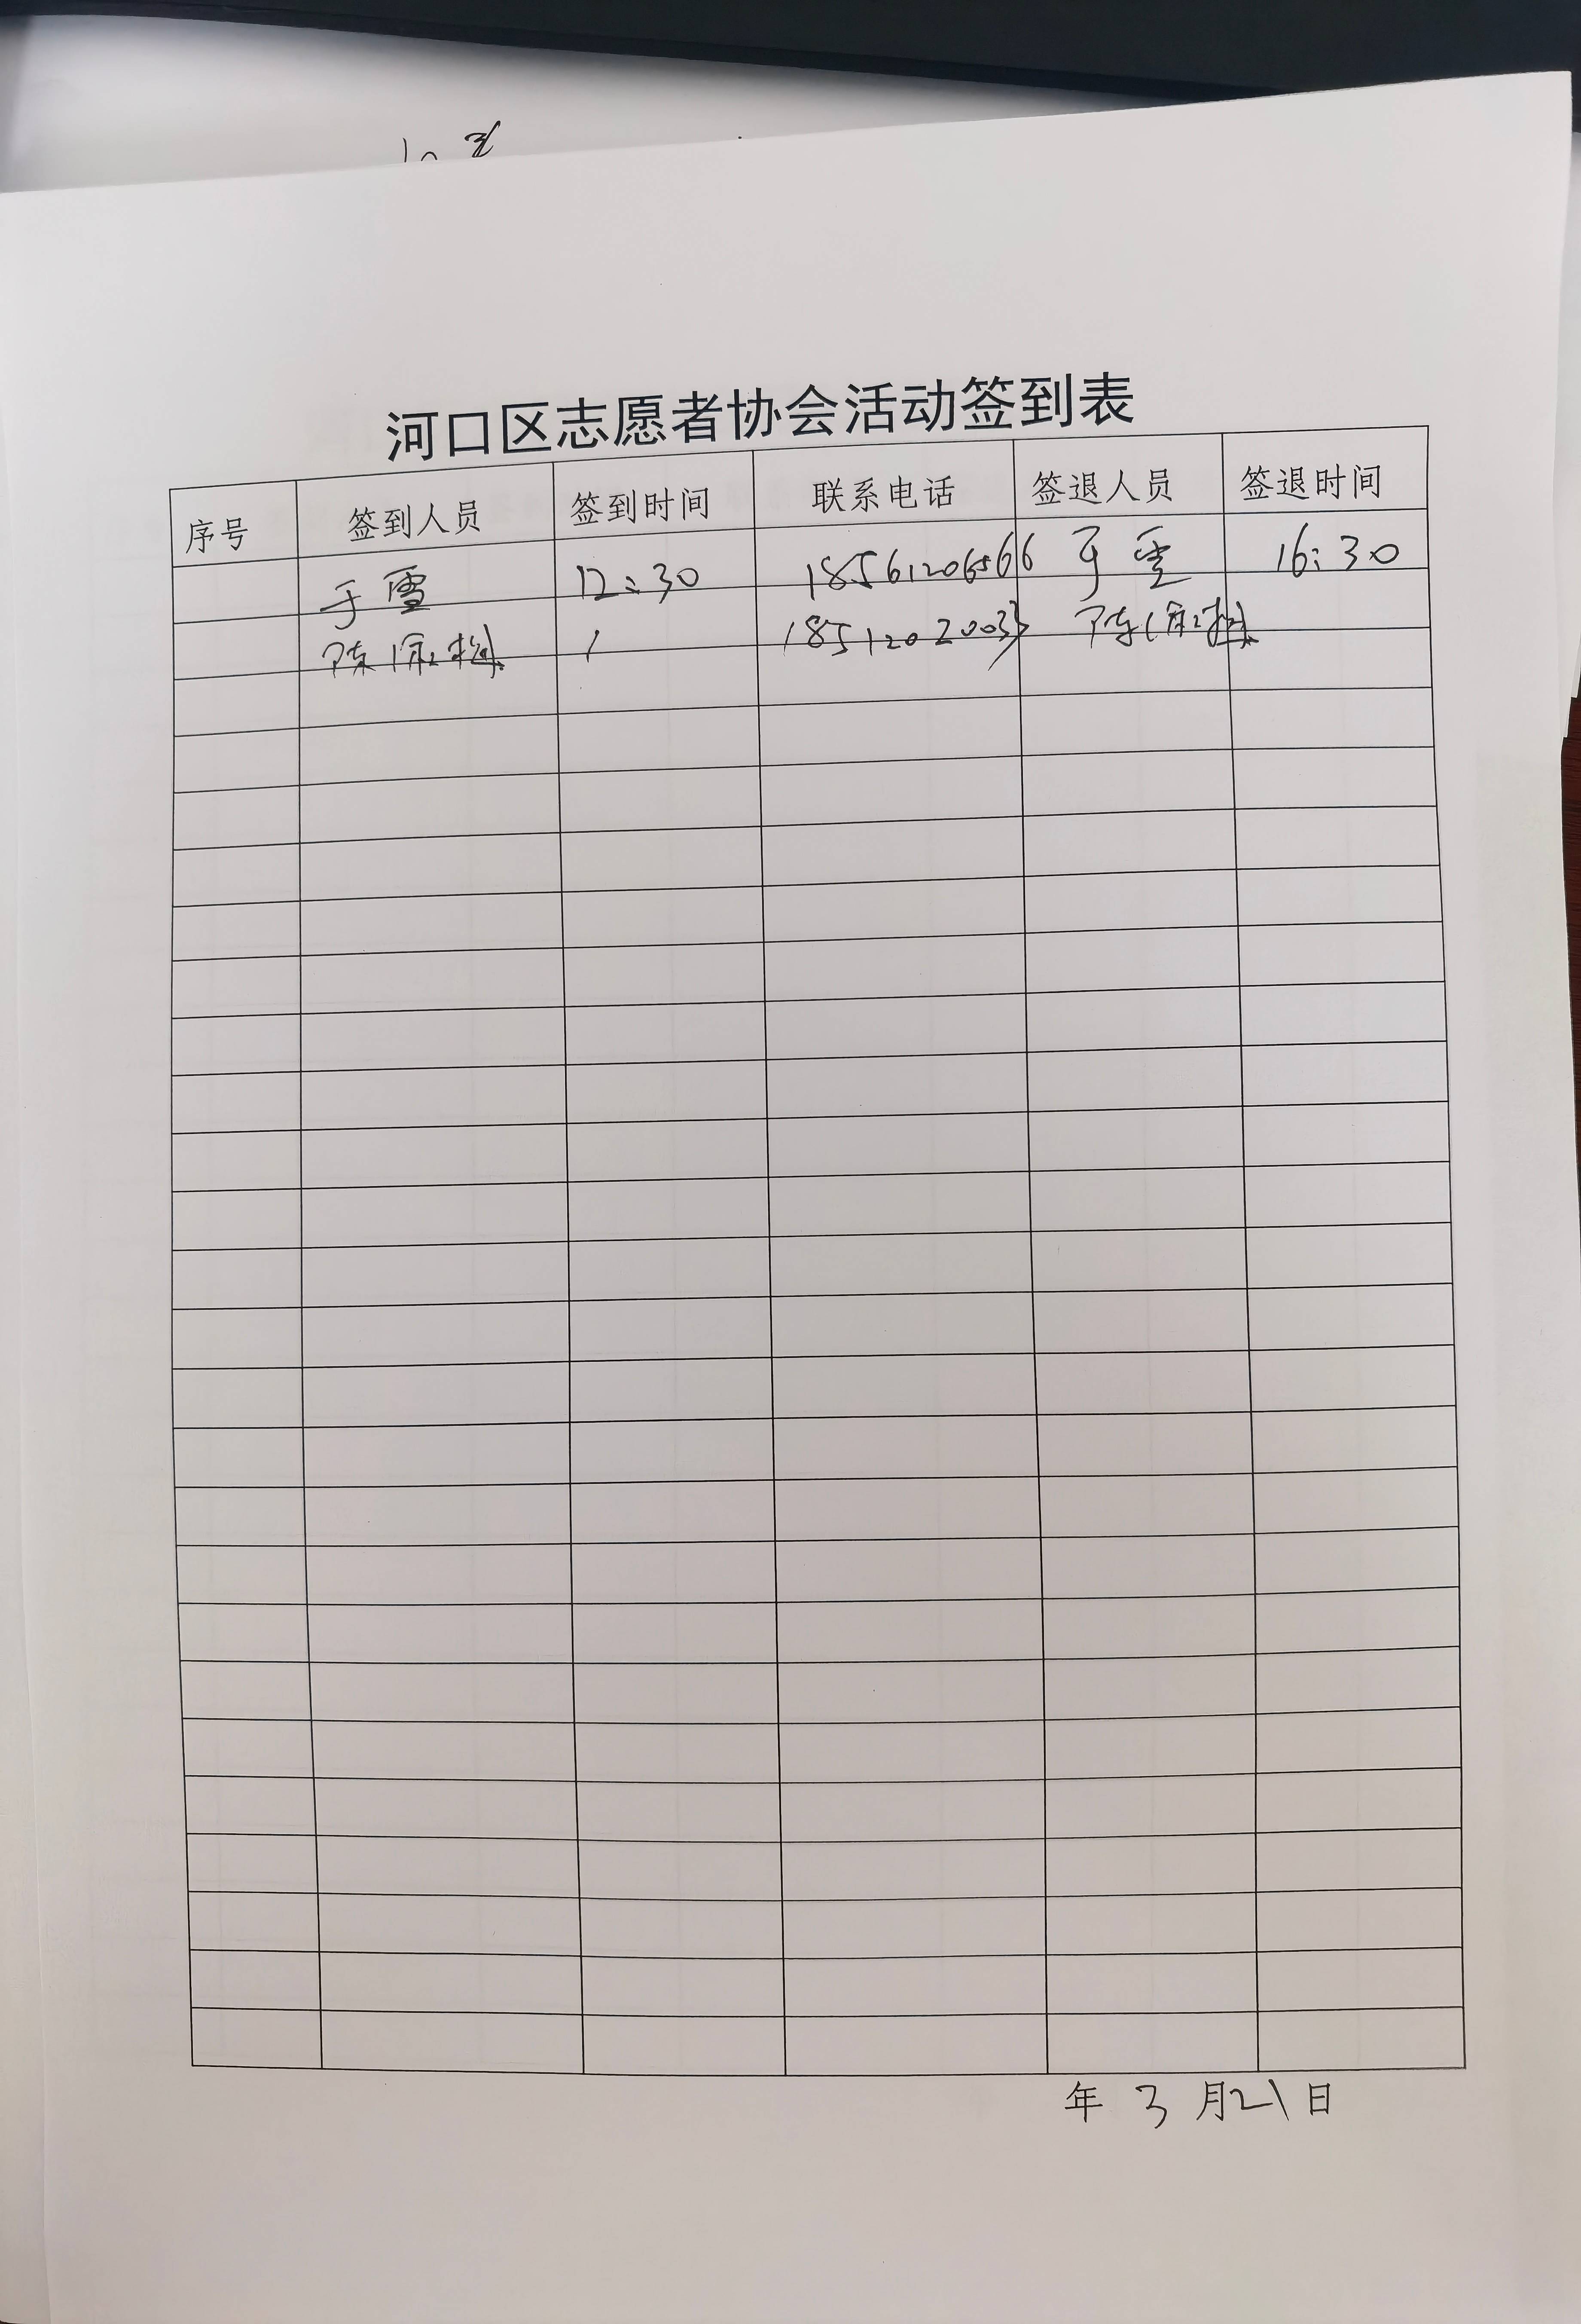 河口区志愿者协会活动签到表
序号 签到人员 签到时间 联系电话 签退人员 签退时间
于雪 12:30 18561206566 于雪 16:30
陈 18512020033 陈
年 3 月 21 日